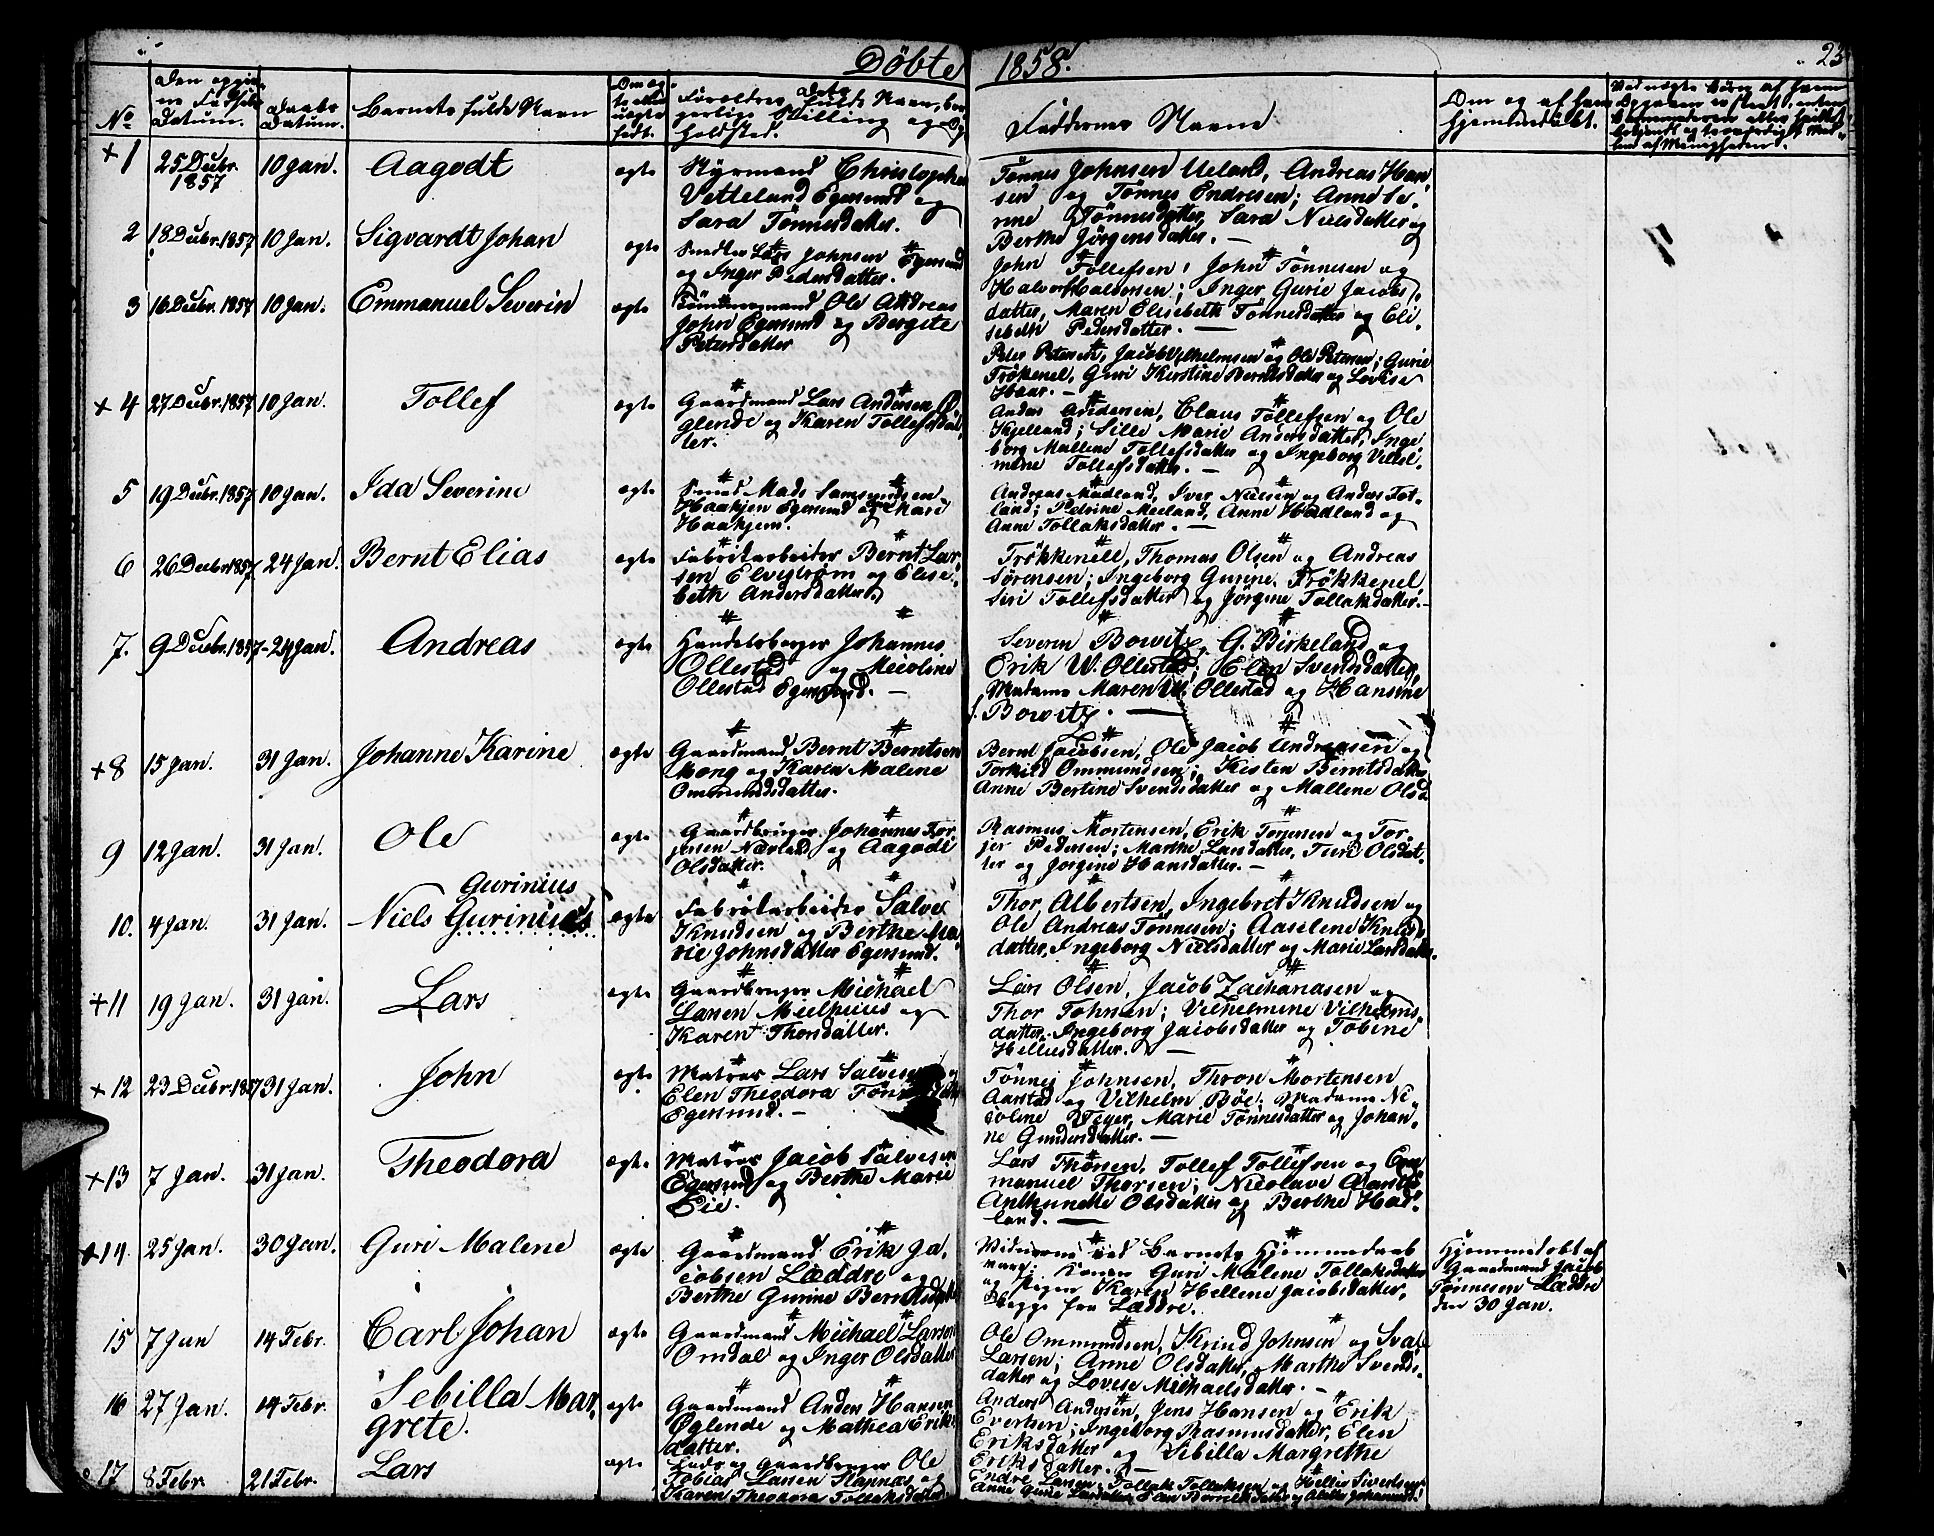 Döbte 1858.
23
No
Den opgivne Fødsels Datum.
Daabs Datum.
Barnets fulde Navn
Om ægte eller uægte født.
Forældres fulde Navn, borgerlige Stilling og Opholdsted.
Faddernes Navne
Om og af hvem hjemmedøbt.
+1
25 Decbr. 1857
10 Jan.
Aagodt
ægte
Styrmand Christopher
Vetteland Egersund og
Sara Tönnesdatter.
Tönnes Johnsen Ueland, Andreas Han,
sen og Tönnes Endresen; Anne Se,
rine Tönnesdatter, Sara Nielsdatter og
Berthe Jörgensdatter. —
2
18 Decbr. 1857
10 Jan.
Sigvardt Johan
ægte
Smed Lars Johnsen Egersund
og Inger Pedersdatter.
John Tollefsen, John Tönnesen og
Halvor Halvorsen; Inger Gurie Jacobs,
datter, Maren Elisebeth Tönnesdatter og Eli,
sebeth Pedersdatter. —
3
16 Decbr. 1857
10 Jan.
Emmanuel Severin
ægte
Tömmermand Ole Andreas
John Egersund og Bergite
Petersdatter
Peter Petersen, Jacob Vilhelmsen og Ole Petersen; Gurie
Trökenel, Guri Kirstine Berntsdatter og Lovise
Haar. —
+4
27 Decbr. 1857
10 Jan.
Tollef
ægte
Gaardmand Lars Andersen Ö,
glende og Karen Tollefsdat,
ter.
Anders Andersen, Claus Tollefsen og Ole
Kjelland; Sille Marie Andersdatter, Inge,
borg Mallene Tollefsdatter og Ingeborg Vilhel,
mine Tollefsdatter. —
5
19 Decbr. 1857
10 Jan.
Ida Severine
ægte
Smed Mads Samsundsen
Haakjen Egersund og Marie
Haakjem.
Andreas Madland, Iver Nielsen og Anders Tot,
land; Petrine Meeland, Anne Hadland og
Anne Tollaksdatter. —
6
26 Decbr. 1857
24 Jan.
Bernt Elias
ægte
Fabrikarbeider Bernt Lar,
sen Elvestrøm og Elise,
beth Andersdatter.
Trökkenell, Thomas Olsen og Andreas
Sörensen; Ingeborg Gurine Trökkenel,
Siri Tollefsdatter og Jörgine Tollaksdatter. —
7.
9 Decbr. 1857
24 Jan.
Andreas
ægte
Handelsborger Johannes
Ollestad og Nicoline
Ollestad Egersund. —
Severin Bowitz, G. Birkeland og
Erik W. Ollestad; Elen Svendsdatter,
Madame Maren W. Ollestad og Hansine
Bowitz. —
+8
15 Jan.
31 Jan.
Johanne Karine
ægte
Gaardmand Bernt Berntsen
Mong og Karen Malene
Ommundsdatter.
Bernt Jacobsen, Ole Jacob Andreassen og
Torkild Ommundsen; Kisten Berntsdatter
Anne Bertine Svendsdatter og Mallene Olsd.
9
12 Jan.
31 Jan.
Ole
ægte
Gaardbruger Johannes Tor,
jersen Nævland og Aagodt
Olsdatter.
Rasmus Mortensen, Erik Torjersen og Tor,
jer Pedersen; Marthe Larsdatter, Turi Olsdat,
ter og Jorgine Hansdatter. —
10.
4 Jan.
31 Jan.
Gurinius
Niels Gurinius
ægte
Fabrikarbeider Salve
Knudsen og Berthe Ma,
rie Johnsdatter Egersund.
Thor Albertsen, Ingebret Knudsen og
Ole Andreas Tönnesen; Aaselene Knuds,
datter, Ingeborg Nielsdatter og Marie Larsdatter.
+11
19 Jan.
31 Jan.
Lars
ægte
Gaardbruger Michael
Larsen Mielhuus og
Karen Thorsdatter.
Lars Olsen, Jacob Zachariasen og
Thor Tohnsen; Vilhelmine Vilhelms,
datter, Ingeborg Jacobsdatter og Tobine
Helliesdatter. —
+12
23 Decbr. 1857
31 Jan.
John
ægte
Matros Lars Salvesen
Elen Theodora Tönnesdatter
Egersund. —
Tönnes Johnsen, Thron Mortensen
Aarstad og Vilhelm Böe; Madame Ni,
coline Feyer, Marie Tönnesdatter og Johan,
ne Gundersdatter. —
+13
7 Jan.
31 Jan.
Theodora
ægte
Matros Jacob Salvesen
Egersund og Berthe Marie
Eie.
Lars Thorsen, Tollef Tollefsen og Em
manuel Thorsen; Nicolave Aarstad
Anthunette Olsdatter og Berthe Had,
land. —
+14.
25 Jan.
30 Jan.
Guri Malene
ægte
Gaardmand Erik Ja,
cobsen Læddre og
Berthe Gurine Berntsdatter
Vidnerne ved Barnets Hjemmedaab
vare: Konen Guri Malene Tollaksdatter
og Pigen Karen Hellene Jacobsdatter,
Begge fra Læddre.
Hjemmedöbt af
Gaardmand Jacob
Tönnesen Læddre
den 30 Jan.
15
7 Jan
14 Febr.
Carl Johan
ægte
Gaardmand Michael Larsen
Omdal og Inger Olsdatter
Ole Ommundsen, Knud Johnsen og Sval
Larsen; Anne Olsdatter, Marthe Svends,
datter og Lovise Michaelsdatter. —
16
27 Jan.
14 Febr.
Sebilla Mar,
grete.
ægte
Gaardmand Anders Hansen
Öglende og Mathea Eriks
datter.
Anders Andersen, Jens Hansen og Erik
Evertsen; Ingeborg Rasmusdatter, Elen
Eriksdatter og Sibilla Margrethe
Eriksdatter. —
17
8 Febr
21 Febr.
Lars
ægte
Lods og Gaardbruger Ole
Tobias Larsen Stapnæs og
Karen Theodora Tollaksdatter
Endre Larsen, Tollak Tollaksen og Hellie Sivertsen;